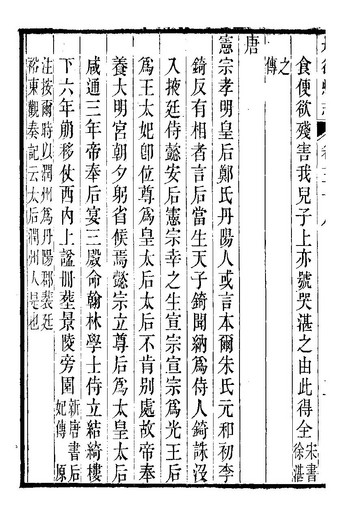 食便欲殘害我兒子上亦號哭湛之由此得全宋書徐湛
之傳
唐
憲宗孝明皇后鄭氏丹陽人或言本爾朱氏元和初李
錡反有相者言后當生天子錡聞納爲侍人錡誅沒
入掖廷侍懿安后憲宗幸之生宣宗宣宗爲光王后
爲王太妃卽位尊爲皇太后太后不肯別處故帝奉
養大明宮朝夕躬省候焉懿宗立尊后爲太皇太后
咸通三年帝奉后宴三殿命翰林學士侍立結綺樓
下六年崩移仗西內上諡冊葬景陵旁園新唐書后妃傳 原
注按爾時以潤州爲丹陽郡裴廷
裕東觀奏記云太后潤州人是也